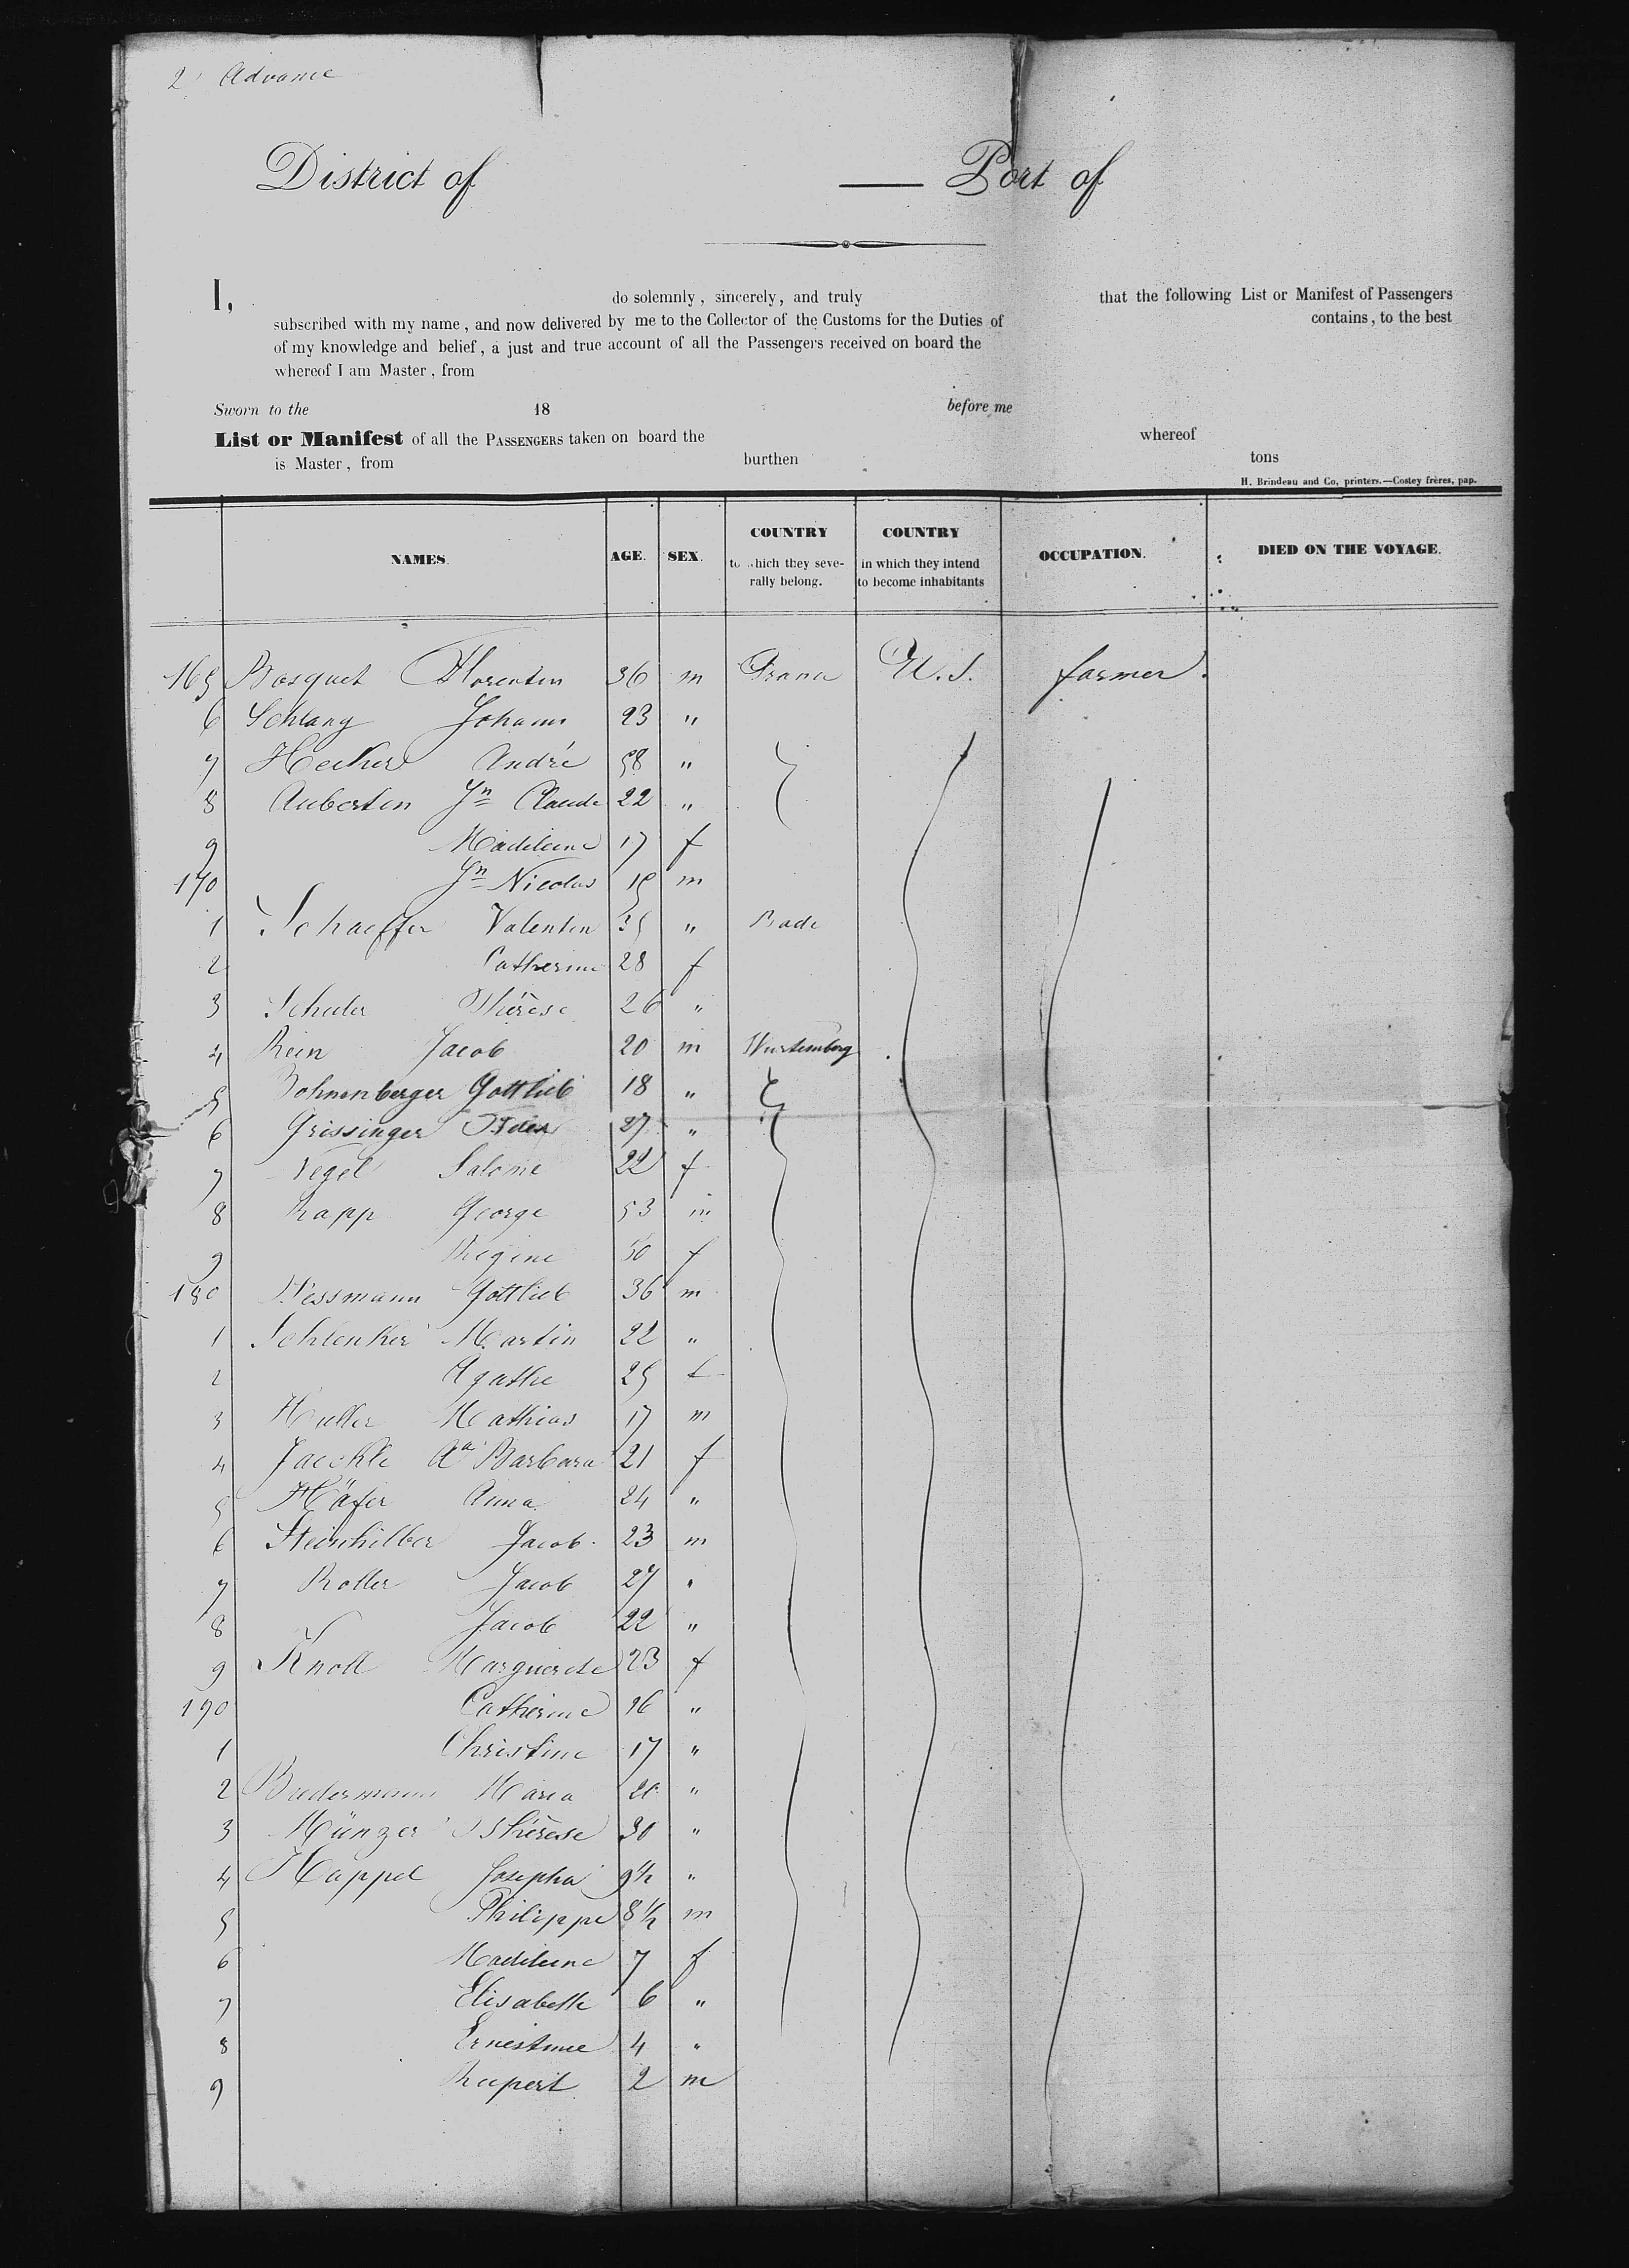 2 Advance
District of — Port of
I, do solemnly, sincerely, and truly that the following List or Manifest of Passengers
subscribed with my name, and now delivered by me to the Collector of the Customs for the Duties of contains, to the best
of my knowledge and belief, a just and true account of all the Passengers received on board the
whereof I am Master, from
Sworn to the 18 before me
List or Manifest of all the PASSENGERS taken on board the whereof
is Master, from burthen tons
H. Brindeau and Co, printers.—Costey frères, pap.
NAMES. AGE. SEX. COUNTRY to which they severally belong. COUNTRY in which they intend to become inhabitants OCCUPATION. DIED ON THE VOYAGE.
165 Bosquet Florentin 36 m France U.S. farmer
6 Schlang Johann 23 "
7 Hecker André 58 "
8 Aubertin Jn Claude 22 "
9 Madeleine 17 f
170 Jn Nicolas 15 m
1 Schaeffer Valentin 35 " Bade
2 Catherine 28 f
3 Schuler Thérèse 26 "
4 Rein Jacob 20 m Wurtemberg
5 Bohnenberger Gottlieb 18 "
6 Grissinger 27 "
7 Vegel Salomé 22 f
8 Rapp George 53 m
9 Regine 50 f
180 Wessmann Gottlieb 36 m
1 Schlenker Martin 22 "
2 Agathe 25 f
3 Huller Mathias 17 m
4 Jaeckle Aa Barbara 21 f
5 Häfer Anna 24 "
6 Steinhilber Jacob 23 m
7 Roller Jacob 27 "
8 Jacob 22 "
9 Knoll Marguerite 23 f
190 Catherine 16 "
1 Christine 17 "
2 Biedermann Maria 20 "
3 Münzer Thérèse 30 "
4 Happel Josepha 9½ "
5 Philippe 8½ m
6 Madeleine 7 f
7 Elisabeth 6 "
8 Ernestine 4 "
9 Rupert 2 m